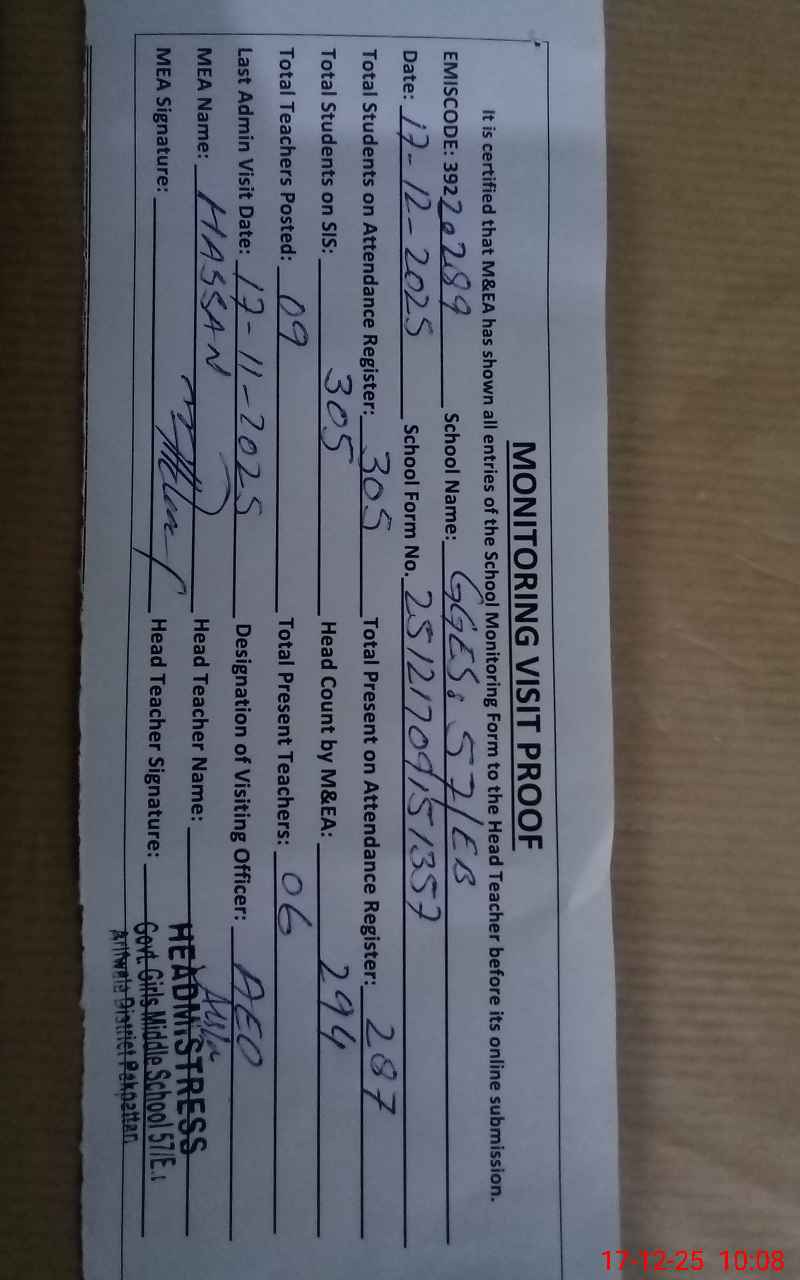 MONITORING VISIT PROOF
It is certified that M&EA has shown all entries of the School Monitoring Form to the Head Teacher before its online submission.
EMISCODE: 39220289 School Name: GGES: 57/EB
Date: 17-12-2025 School Form No. 25121709151357
Total Students on Attendance Register: 305 Total Present on Attendance Register: 287
Total Students on SIS: 305 Head Count by M&EA: 294
Total Teachers Posted: 09 Total Present Teachers: 06
Last Admin Visit Date: 17-11-2025 Designation of Visiting Officer: AEO
MEA Name: HASSAN Head Teacher Name:
MEA Signature: Head Teacher Signature:
HEADMISTRESS
Govt. Girls Middle School 57/E.
District Pakpattan
17-12-25 10:08